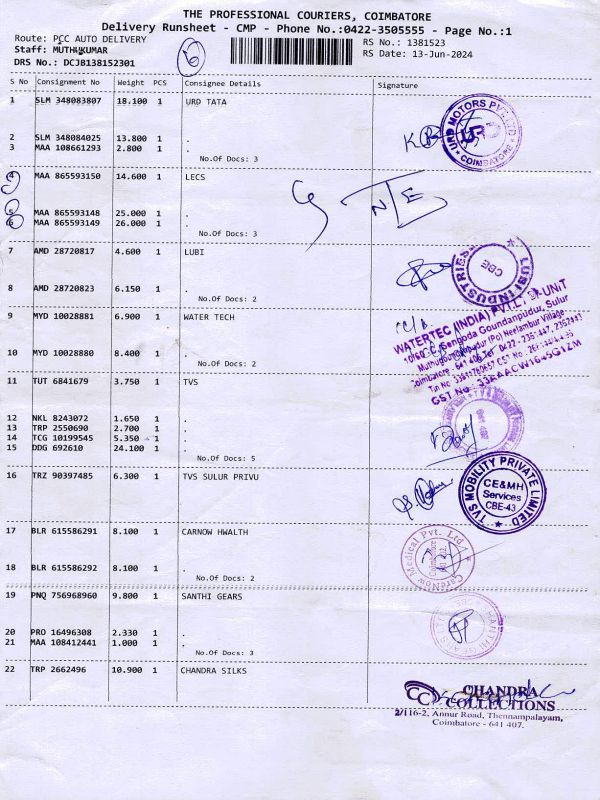 THE PROFESSIONAL COURIERS, COIMBATORE
Delivery Runsheet - CMP - Phone No.:0422-3505555 - Page No.:1
Route: PCC AUTO DELIVERY
Staff: MUTHUKUMAR
DRS No.: DCJB138152301
6
RS No.: 1381523
RS Date: 13-Jun-2024
S No Consignment No Weight PCS Consignee Details Signature
1 SLM 348083807 18.100 1 URD TATA
2 SLM 348084025 13.800 1 .
3 MAA 108661293 2.800 1 .
No.Of Docs: 3
URD MOTORS PVT LTD
URD
* COIMBATORE *
4 MAA 865593150 14.600 1 LECS
5 MAA 865593148 25.000 1 .
6 MAA 865593149 26.000 1 .
No.Of Docs: 3
7 AMD 28720817 4.600 1 LUBI
8 AMD 28720823 6.150 1 .
No.Of Docs: 2
LUBI INDUSTRIES
CBE
9 MYD 10028881 6.900 1 WATER TECH
10 MYD 10028880 8.400 1 .
No.Of Docs: 2
WATERTEC (INDIA) PVT. LTD. UNIT
Sengoda Goundanpudur, Sulur
Muthugoundenpudur (Po) Neelambur Village
Coimbatore - 641 406
GST No : 33AAACW1645G1ZM
11 TUT 6841679 3.750 1 TVS
12 NKL 8243072 1.650 1 .
13 TRP 2550690 2.700 1 .
14 TCG 10199545 5.350 1 .
15 DDG 692610 24.100 1 .
No.Of Docs: 5
16 TRZ 90397485 6.300 1 TVS SULUR PRIVU
TVS MOBILITY PRIVATE LIMITED
CE&MH
Services
CBE-43
17 BLR 615586291 8.100 1 CARNOW HWALTH
18 BLR 615586292 8.100 1 .
No.Of Docs: 2
CareNow Medical Pvt. Ltd
19 PNQ 756968960 9.800 1 SANTHI GEARS
20 PRO 16496308 2.330 1 .
21 MAA 108412441 1.000 1 .
No.Of Docs: 3
22 TRP 2662496 10.900 1 CHANDRA SILKS
CC CHANDRA
COLLECTIONS
2/116-2, Annur Road, Thennampalayam,
Coimbatore - 641 407.